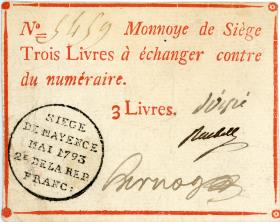 No. 5459 Monnoye de Siège
Trois Livres à échanger contre
du numéraire.
3 Livres.
SIEGE
DE MAYENCE
MAI 1793
2e DE LA REP.
FRANC: